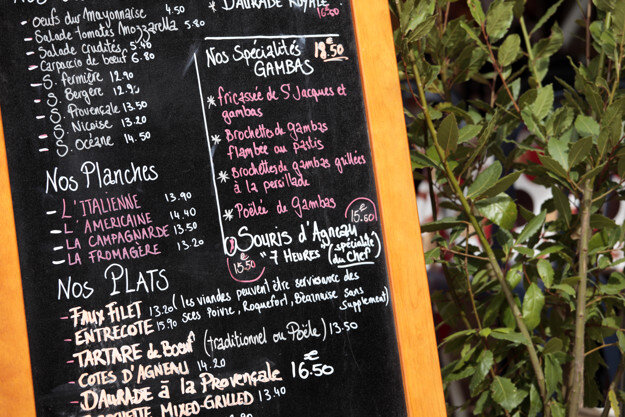 Oeufs dur Mayonnaise 4.50
Salade tomates Mozzarella 5.50
Salade crudités 5.40
Carpaccio de boeuf 6.80
S. fermière 12.90
S. Bergère 12.90
S. Provençale 13.50
S. Niçoise 13.20
S. Océane 14.50
Nos Planches
L'ITALIENNE 13.90
L'AMERICAINE 14.40
LA CAMPAGNARDE 13.50
LA FROMAGÈRE 13.20
DAURADE ROYALE
16.50
Nos Spécialités 18.50
GAMBAS
* fricassée de St Jacques et
gambas
* Brochettes de gambas
flambée au pastis
* Brochettes de gambas grillées
à la persillade
* Poêlée de Gambas
15.60 €
Souris d'Agneau
7 HEURES (spécialité
du Chef)
15.50 €
Nos PLATS
- FAUX FILET 13.20 (les viandes peuvent être servies avec des
ENTRECOTE 15.90 sces Poivre, Roquefort, Béarnaise sans
supplement)
- TARTARE de Boeuf (traditionnel ou Poêlé) 13.50
- COTES D'AGNEAU 14.20
- DAURADE à la Provençale 16.50 €
MIXED-GRILLED 13.40